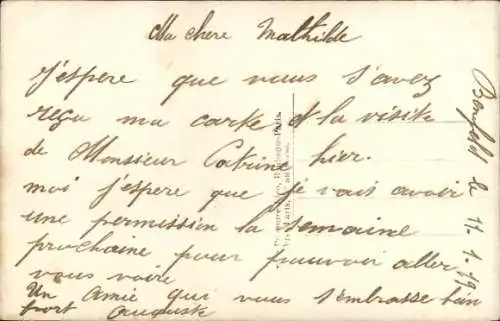 Ma chere Mathilde
j'espere que vous l'avez
reçu ma carte et la visite
de Monsieur hier.
moi j'espere que je vais avoir
une permission la semaine
prochaine pour pouvoir aller
vous voire
Un Amie que vous l'embrasse bien
fort Auguste
le 11.1.19